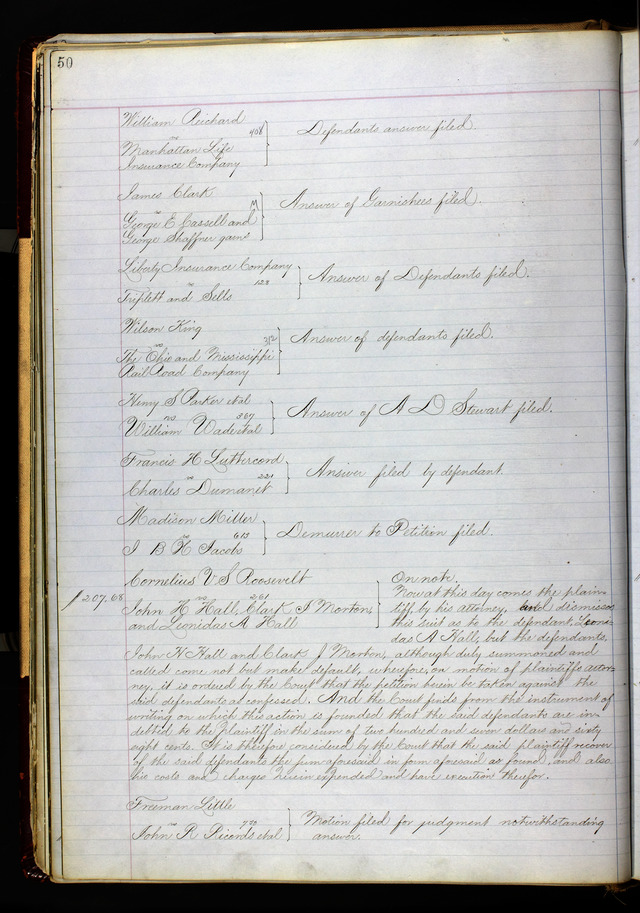 50
William Reichard
vs 408
Manhattan Life
Insurance Company
Defendants answer filed.
James Clark
vs
George E Cassell and
George Shaffner garns
Answer of Garnishees filed.
Liberty Insurance Company
vs 123
Triplett and Sells
Answer of Defendants filed.
Wilson King
vs 312
The Ohio and Mississippi
Rail Road Company
Answer of defendants filed.
Henry S Parker etal
vs 367
William Wade etal
Answer of A D Stewart filed.
Francis H Luttercord
vs 221
Charles Dumanit
Answer filed by defendant.
Madison Miller
vs 613
J B H Jacobs
Demurrer to Petition filed.
Cornelius V. S Roosevelt
vs 261
$207.68
John H Hall, Clark S Morton,
and Leonidas A Hall
On note.
Now at this day comes the plain-
tiff by his attorney, and dismisses
this suit as to the defendant, Leoni-
das A Hall, but the defendants,
John H Hall and Clark J Morton, although duly summoned and
called come not but make default, wherefore, on motion of plaintiffs attor-
ney, it is ordered by the Court that the petition herein be taken against the
said defendants as confessed. And the Court finds from the instrument of
writing on which this action is founded that the said defendants are in-
debted to the plaintiff in the sum of two hundred and seven dollars and sixty
eight cents. It is therefore considered by the Court that the said plaintiff recover
of the said defendants the sum aforesaid in form aforesaid as found, and also
his costs and charges herein expended and have execution therefor.
Freeman Little
vs 770
John R Ricords etal
Motion filed for judgment notwithstanding
answer.